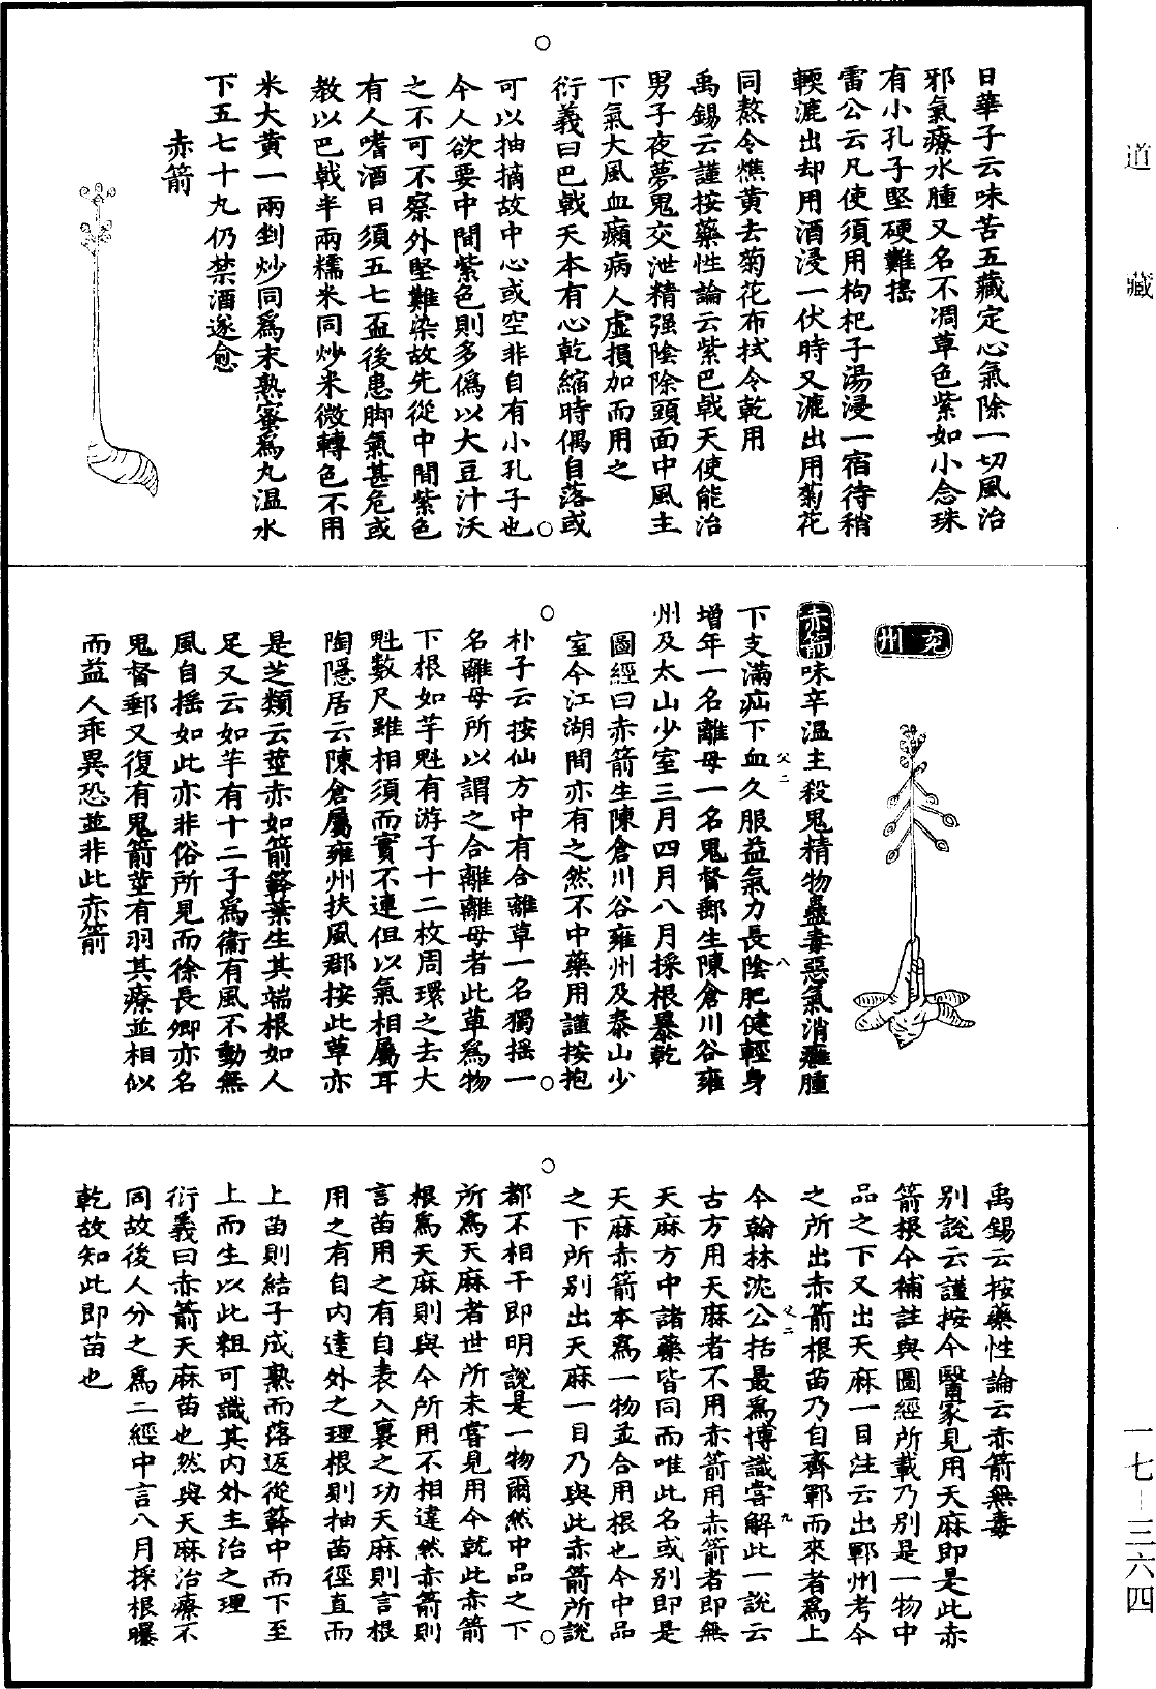 道藏
日華子云味苦五藏定心氣除一切風治
邪氣療水腫又名不凋草色紫如小念珠
有小孔子堅硬難搗
雷公云凡使須用枸杞子湯浸一宿待稍
輭漉出却用酒浸一伏時又漉出用菊花
同熬令燋黃去菊花布拭令乾用
禹錫云謹按藥性論云紫巴戟天使能治
男子夜夢鬼交泄精强陰除頭面中風主
下氣大風血癩病人虛損加而用之
衍義曰巴戟天本有心乾縮時偶自落或
可以抽摘故中心或空非自有小孔子也
今人欲要中間紫色則多僞以大豆汁沃
之不可不察外堅難染故先從中間紫色
有人嗜酒日須五七盃後患脚氣甚危或
教以巴戟半兩糯米同炒米微轉色不用
米大黃一兩剉炒同爲末熟蜜爲丸溫水
下五七十丸仍禁酒遂愈
赤箭
兖州
赤箭味辛溫主殺鬼精物蠱毒惡氣消癰腫
下支滿疝下血久服益氣力長陰肥健輕身
增年一名離母一名鬼督郵生陳倉川谷雍
州及太山少室三月四月八月採根暴乾
圖經曰赤箭生陳倉川谷雍州及泰山少
室今江湖間亦有之然不中藥用謹按抱
朴子云按仙方中有合離草一名獨搖一
名離母所以謂之合離離母者此草爲物
下根如芋魁有游子十二枚周環之去大
魁數尺雖相須而實不連但以氣相屬耳
陶隱居云陳倉屬雍州扶風郡按此草亦
是芝類云莖赤如箭簳葉生其端根如人
足又云如芋有十二子爲衞有風不動無
風自搖如此亦非俗所見而徐長卿亦名
鬼督郵又復有鬼箭莖有羽其療並相似
而益人乖異恐並非此赤箭
父二
八
禹錫云按藥性論云赤箭無毒
別說云謹按今醫家見用天麻即是此赤
箭根今補註與圖經所載乃別是一物中
品之下又出天麻一目注云出鄆州考今
之所出赤箭根苗乃自齊鄆而來者爲上
今翰林沈公括最爲博識嘗解此一說云
古方用天麻者不用赤箭用赤箭者即無
天麻方中諸藥皆同而唯此名或別即是
天麻赤箭本爲一物並合用根也今中品
之下所別出天麻一目乃與此赤箭所說
都不相干即明說是一物爾然中品之下
所爲天麻者世所未嘗見用今就此赤箭
根爲天麻則與今所用不相違然赤箭則
言苗用之有自表入裏之功天麻則言根
用之有自內達外之理根則抽苗徑直而
上苗則結子成熟而落返從簳中而下至
上而生以此粗可識其內外主治之理
衍義曰赤箭天麻苗也然與天麻治療不
同故後人分之爲二經中言八月採根曝
乾故知此即苗也
父二
九
一七—三六四